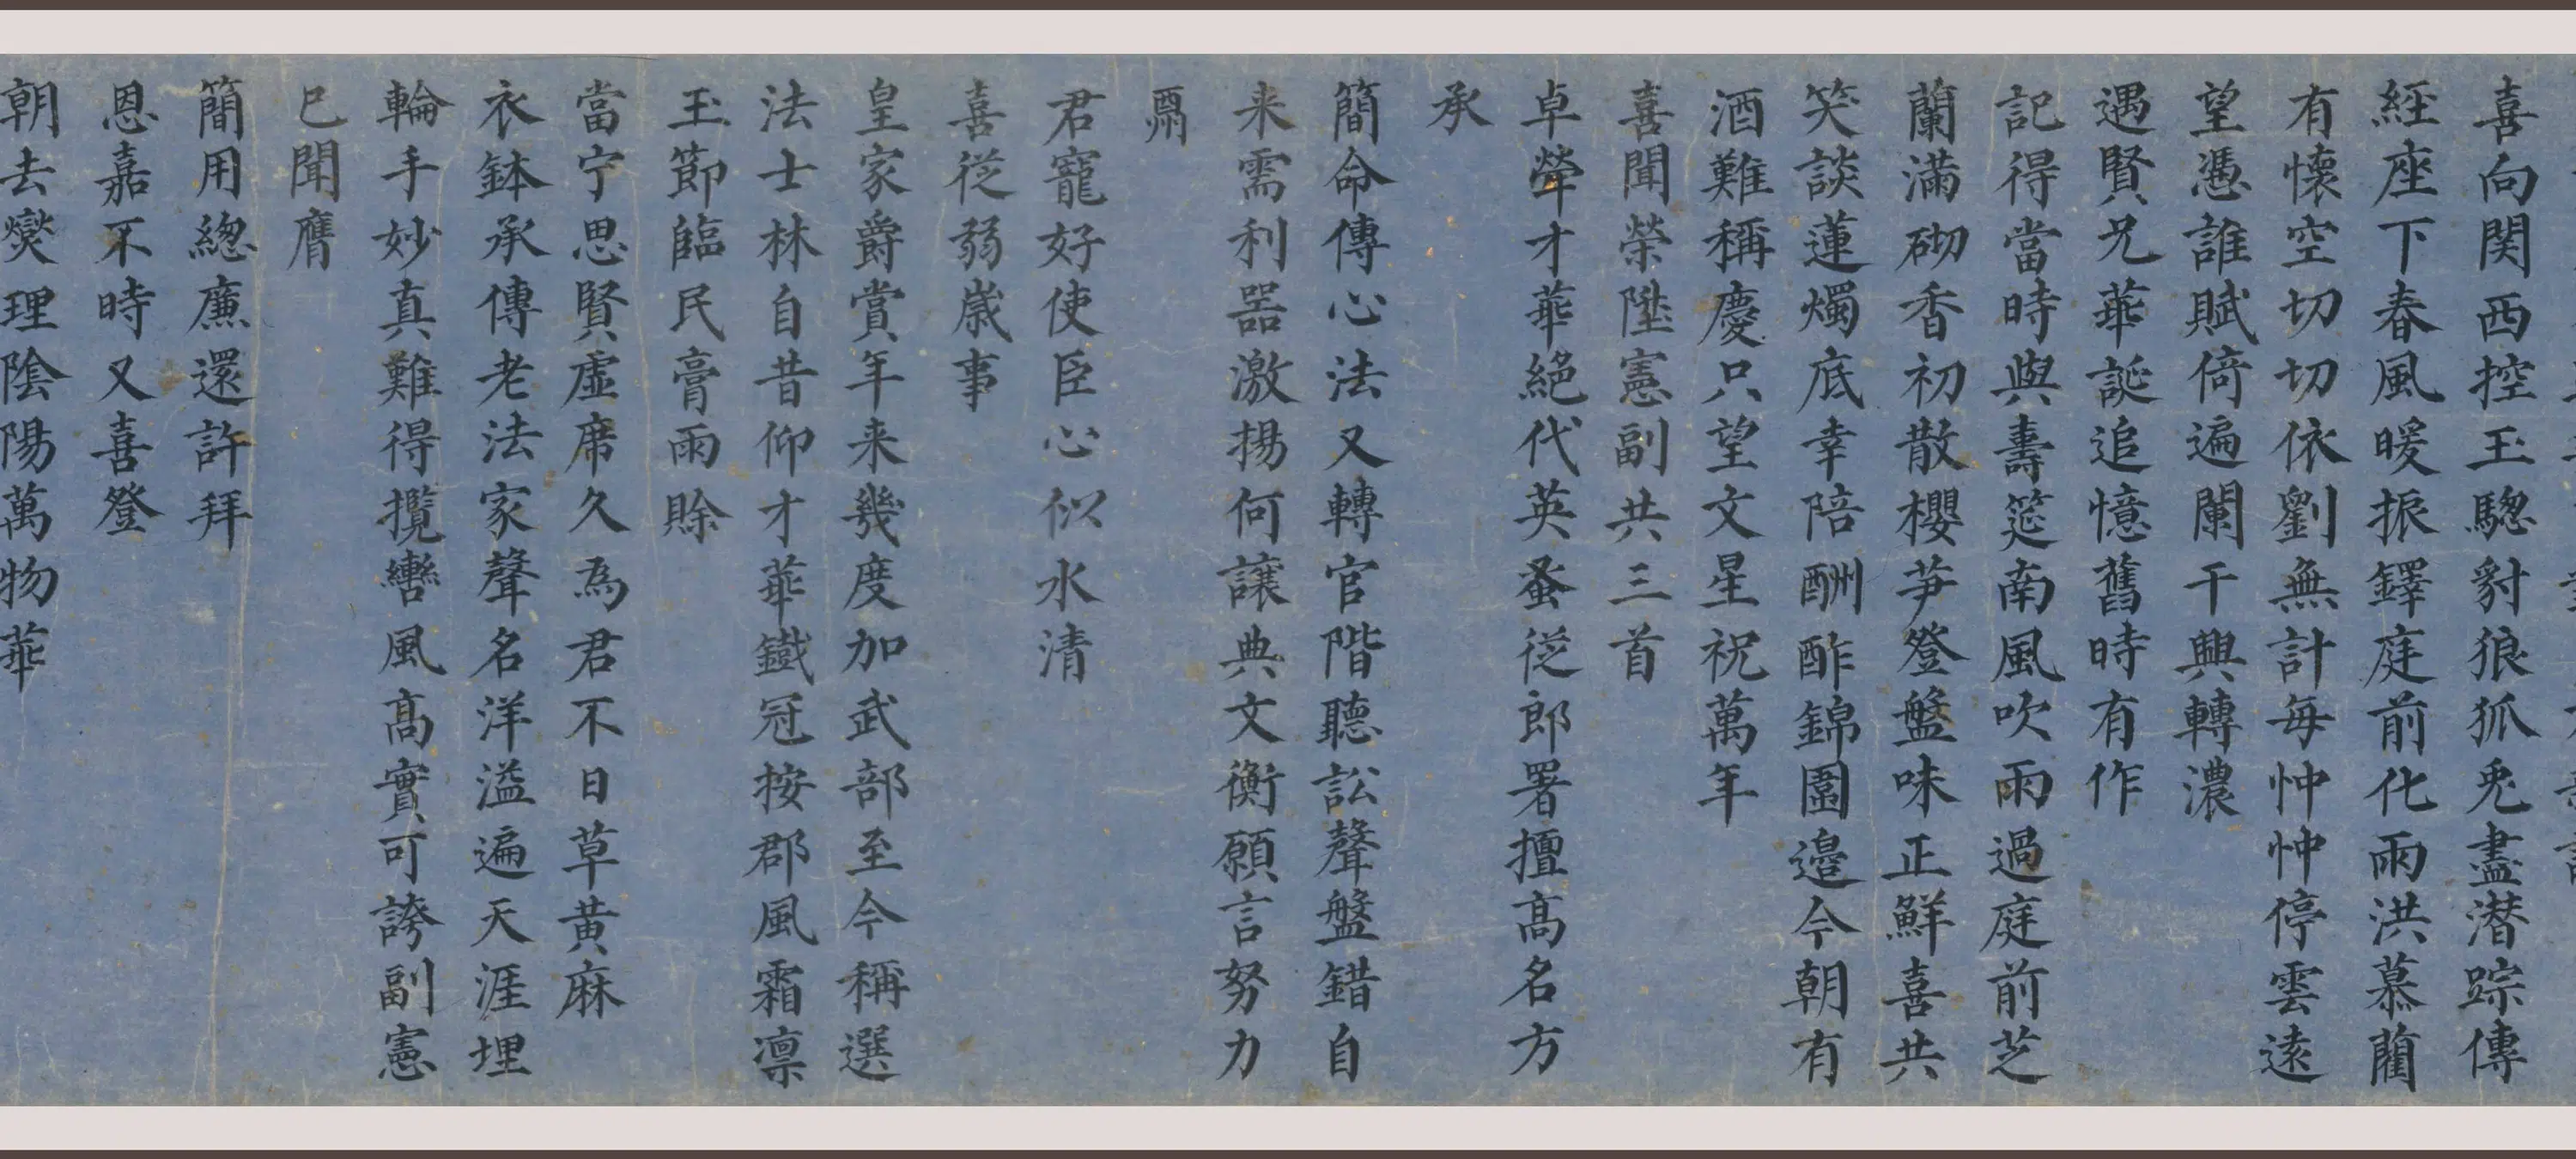 喜向関西控玉驄豺狼狐兎盡潜踪傳
経座下春風暖振鐸庭前化雨洪慕藺
有懐空切切依劉無計毎忡忡停雲遠
望憑誰賦倚遍闌干興轉濃
遇賢兄華誕追憶舊時有作
記得當時與壽筵南風吹雨過庭前芝
蘭滿砌香初散櫻笋登盤味正鮮喜共
笑談蓮燭底幸陪酬酢錦圍邉今朝有
酒難稱慶只望文星祝萬年
喜聞榮陞憲副共三首
卓犖才華絕代英蚤從郎署擅髙名方
承
簡命傳心法又轉官階聽訟聲盤錯自
来需利器激揚何讓典文衡願言努力
酬
君寵好使臣心似水清
喜從弱嵗事
皇家爵賞年来幾度加武部至今稱選
法士林自昔仰才華鐵冠按郡風霜凛
玉節臨民膏雨賒
當宁思賢虛席久為君不日草黄麻
衣鉢承傳老法家聲名洋溢遍天涯埋
輪手妙真難得攬轡風髙實可誇副憲
已聞膺
簡用緫廉還許拜
恩嘉不時又喜登
朝去爕理隂陽萬物華